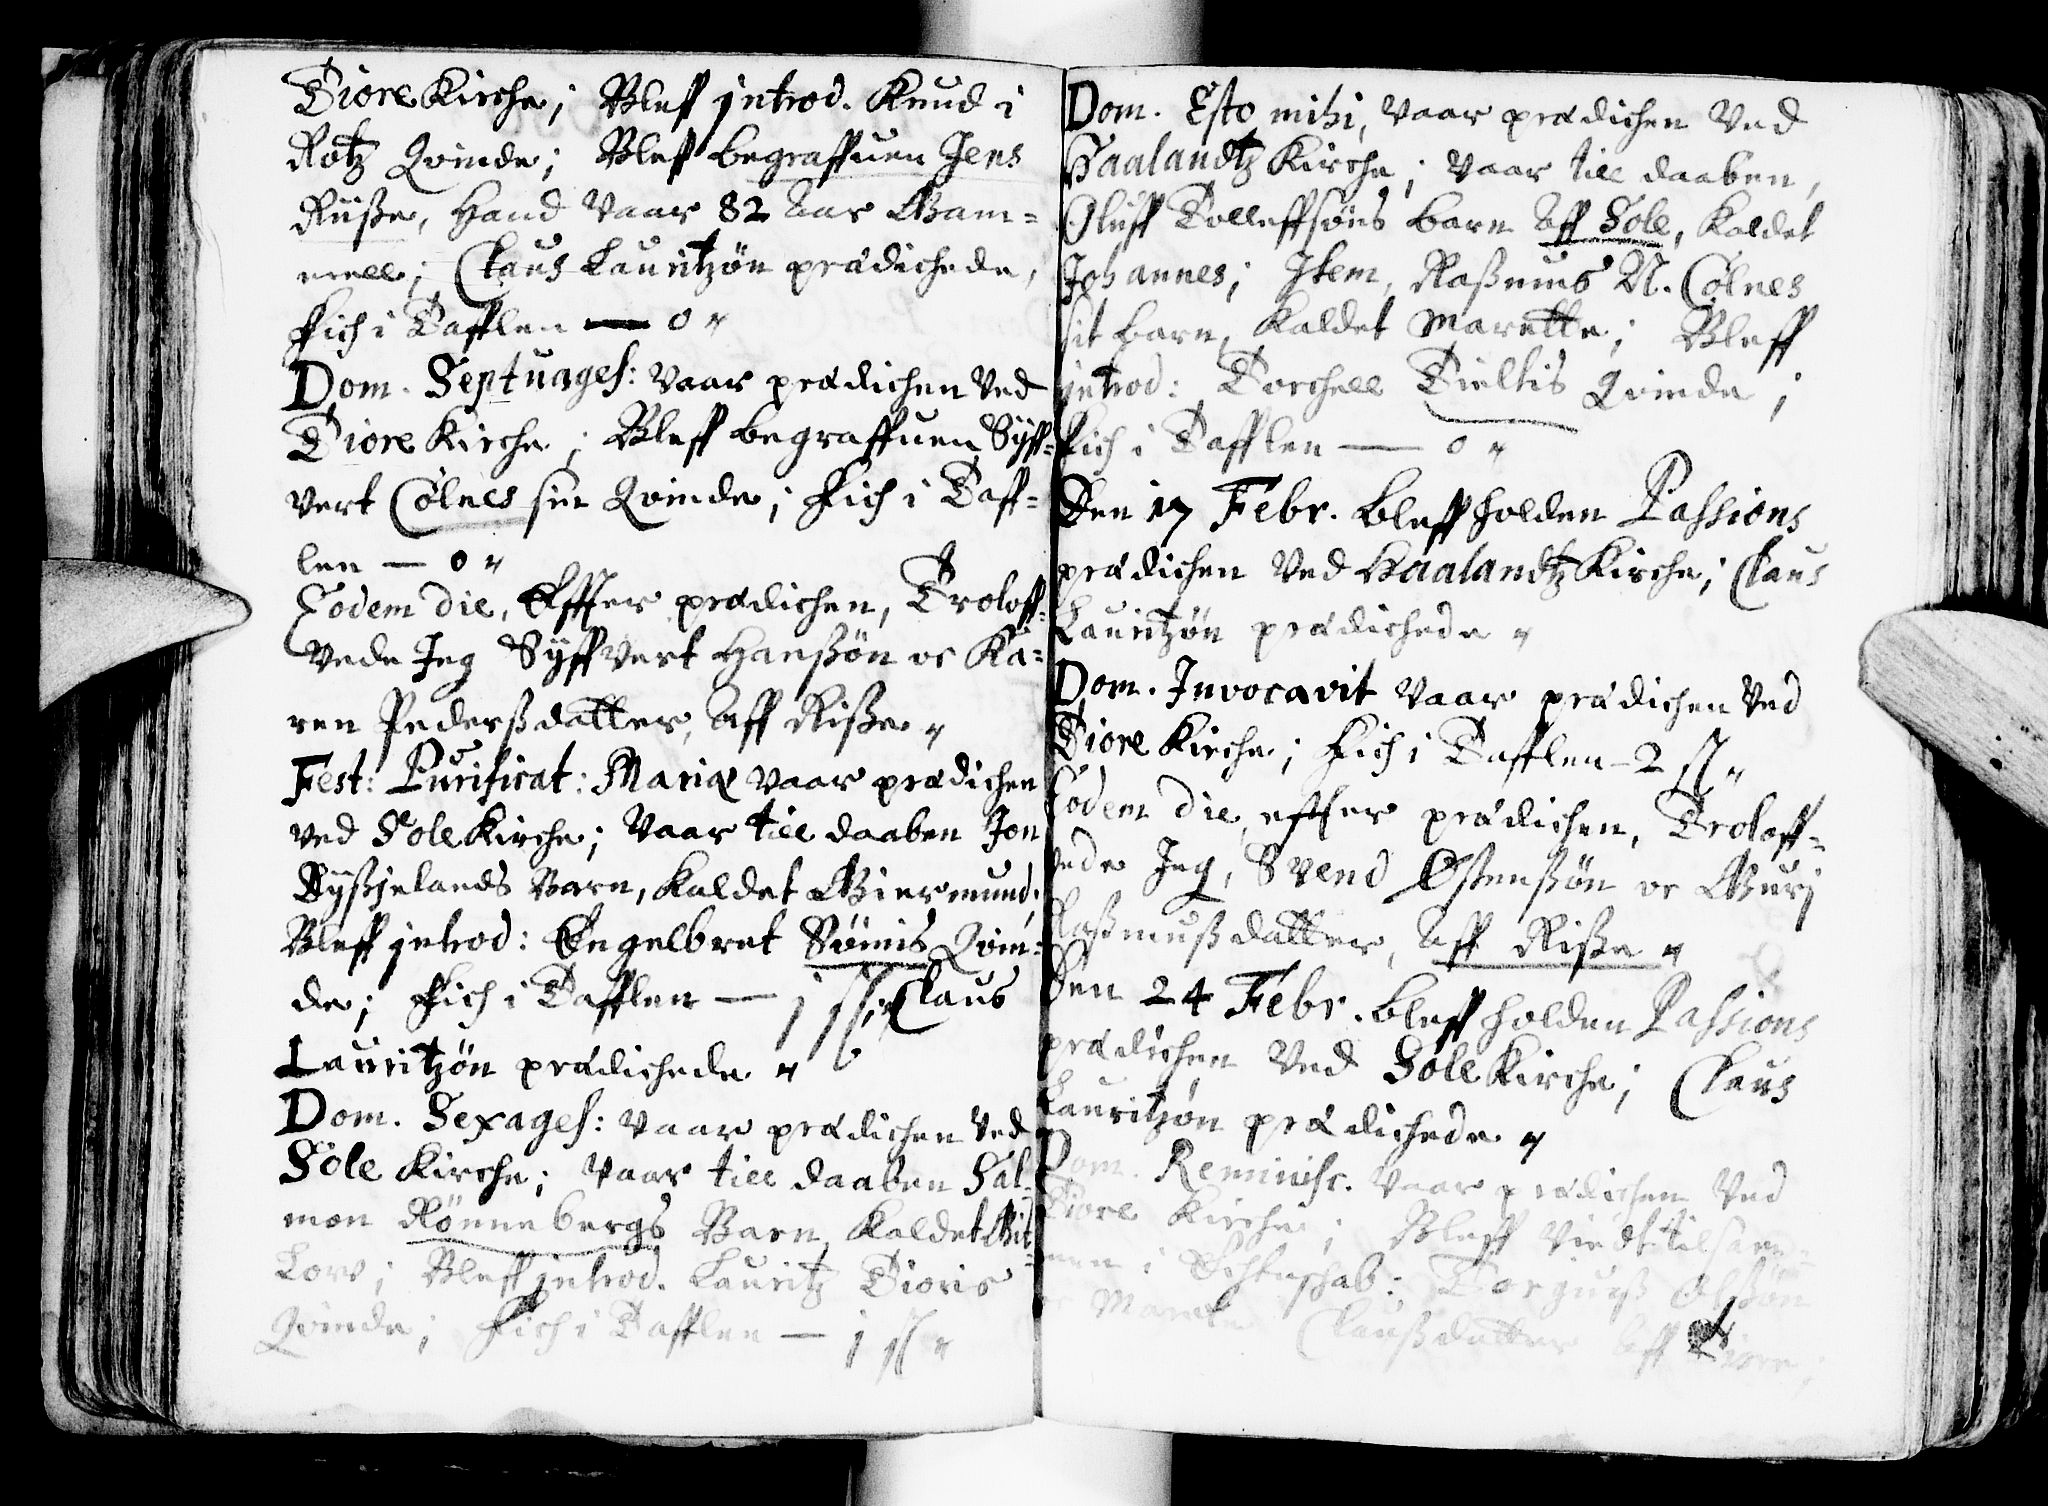 Tiore Kirche; Bleff introd. Knud i
Rotz Qvinde; Bleff begraffuen Jens
Russe, Hand vaar 82 Aar Gam=
mell; Claus Lauritzøn prædichede,
Fich i Tafflen — 0 "
Dom. Septuages: vaar prædichen ved
Tiore Kirche; Bleff begraffuen Syff=
vert Cølnes sin Qvinde; Fich i Taff=
len — 0 "
Eodem die, Effter prædichen, Troloff=
vede Jeg Syffvert Hanßøn oc Ka=
ren Pederßdatter, Aff Riße "
Fest: Purificat: Mariæ vaar prædichen
ved Sole Kirche; Vaar till daaben Jon
Syßjelands Barn, kaldet Giermund;
Bleff introd: Engelbret Sømis Qvin=
de; Fich i Tafflen — j ß; Claus
Lauritzøn prædichede "
Dom. Sexages: vaar prædichen ved
Sole Kirche; Vaar till daaben Sal=
mon Rønnebergs Barn, kaldet Git=
Lov; Bleff introd. Lauritz Tioris
Qvinde; Fich i Tafflen — j ß "
Dom. Esto mihi, vaar prædichen ved
Haalandtz Kirche; Vaar till daaben,
Oluff Tolleffsøns barn Aff Sole, kaldet
Johannes; Item, Raßmus N. Cølnes
sit barn, kaldet Marette; Bleff
introd: Torchell Tieltis Qvinde;
Fich i Tafflen — 0 "
Den 17 Febr. bleff holden Passions
prædichen ved Haalandtz Kirche; Claus
Lauritzøn prædichede "
Dom. Invocavit vaar prædichen ved
Tiore Kirche; Fich i Tafflen — 2 ß "
Eodem die, effter prædichen, Troloff=
vede Jeg, Svend Østenßøn oc Gurj
Raßmußdatter, Aff Riße "
Den 24 Febr. bleff holden Passions
prædichen ved Sole Kirche; Claus
Lauritzøn prædichede "
Dom. Reminisc. vaar prædichen ved
Tiore Kirche; Bleff viedt tilsam=
men i Echteschab: Torguß Olßøn
oc Marete Claußdatter Aff Tiore;